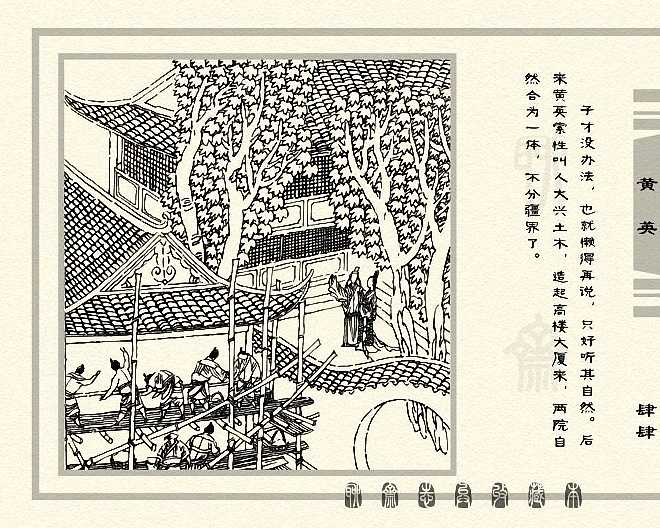 子才没办法，也就懒得再说，只好听其自然。后
来黄英索性叫人大兴土木，造起高楼大厦来，两院自
然合为一体，不分疆界了。
黄英
肆肆
聊斋志异收藏本